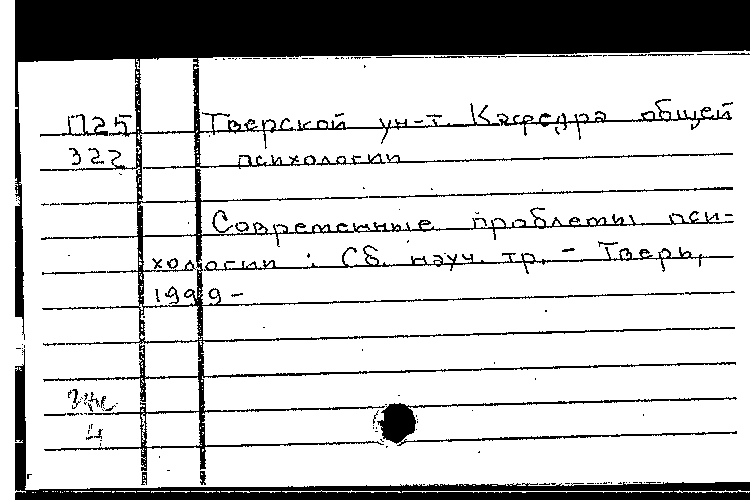 П25 Тверской ун-т. Кафедра общей
322 психологии
Современные проблемы пси-
хологии : Сб. науч. тр. - Тверь,
1999-
4